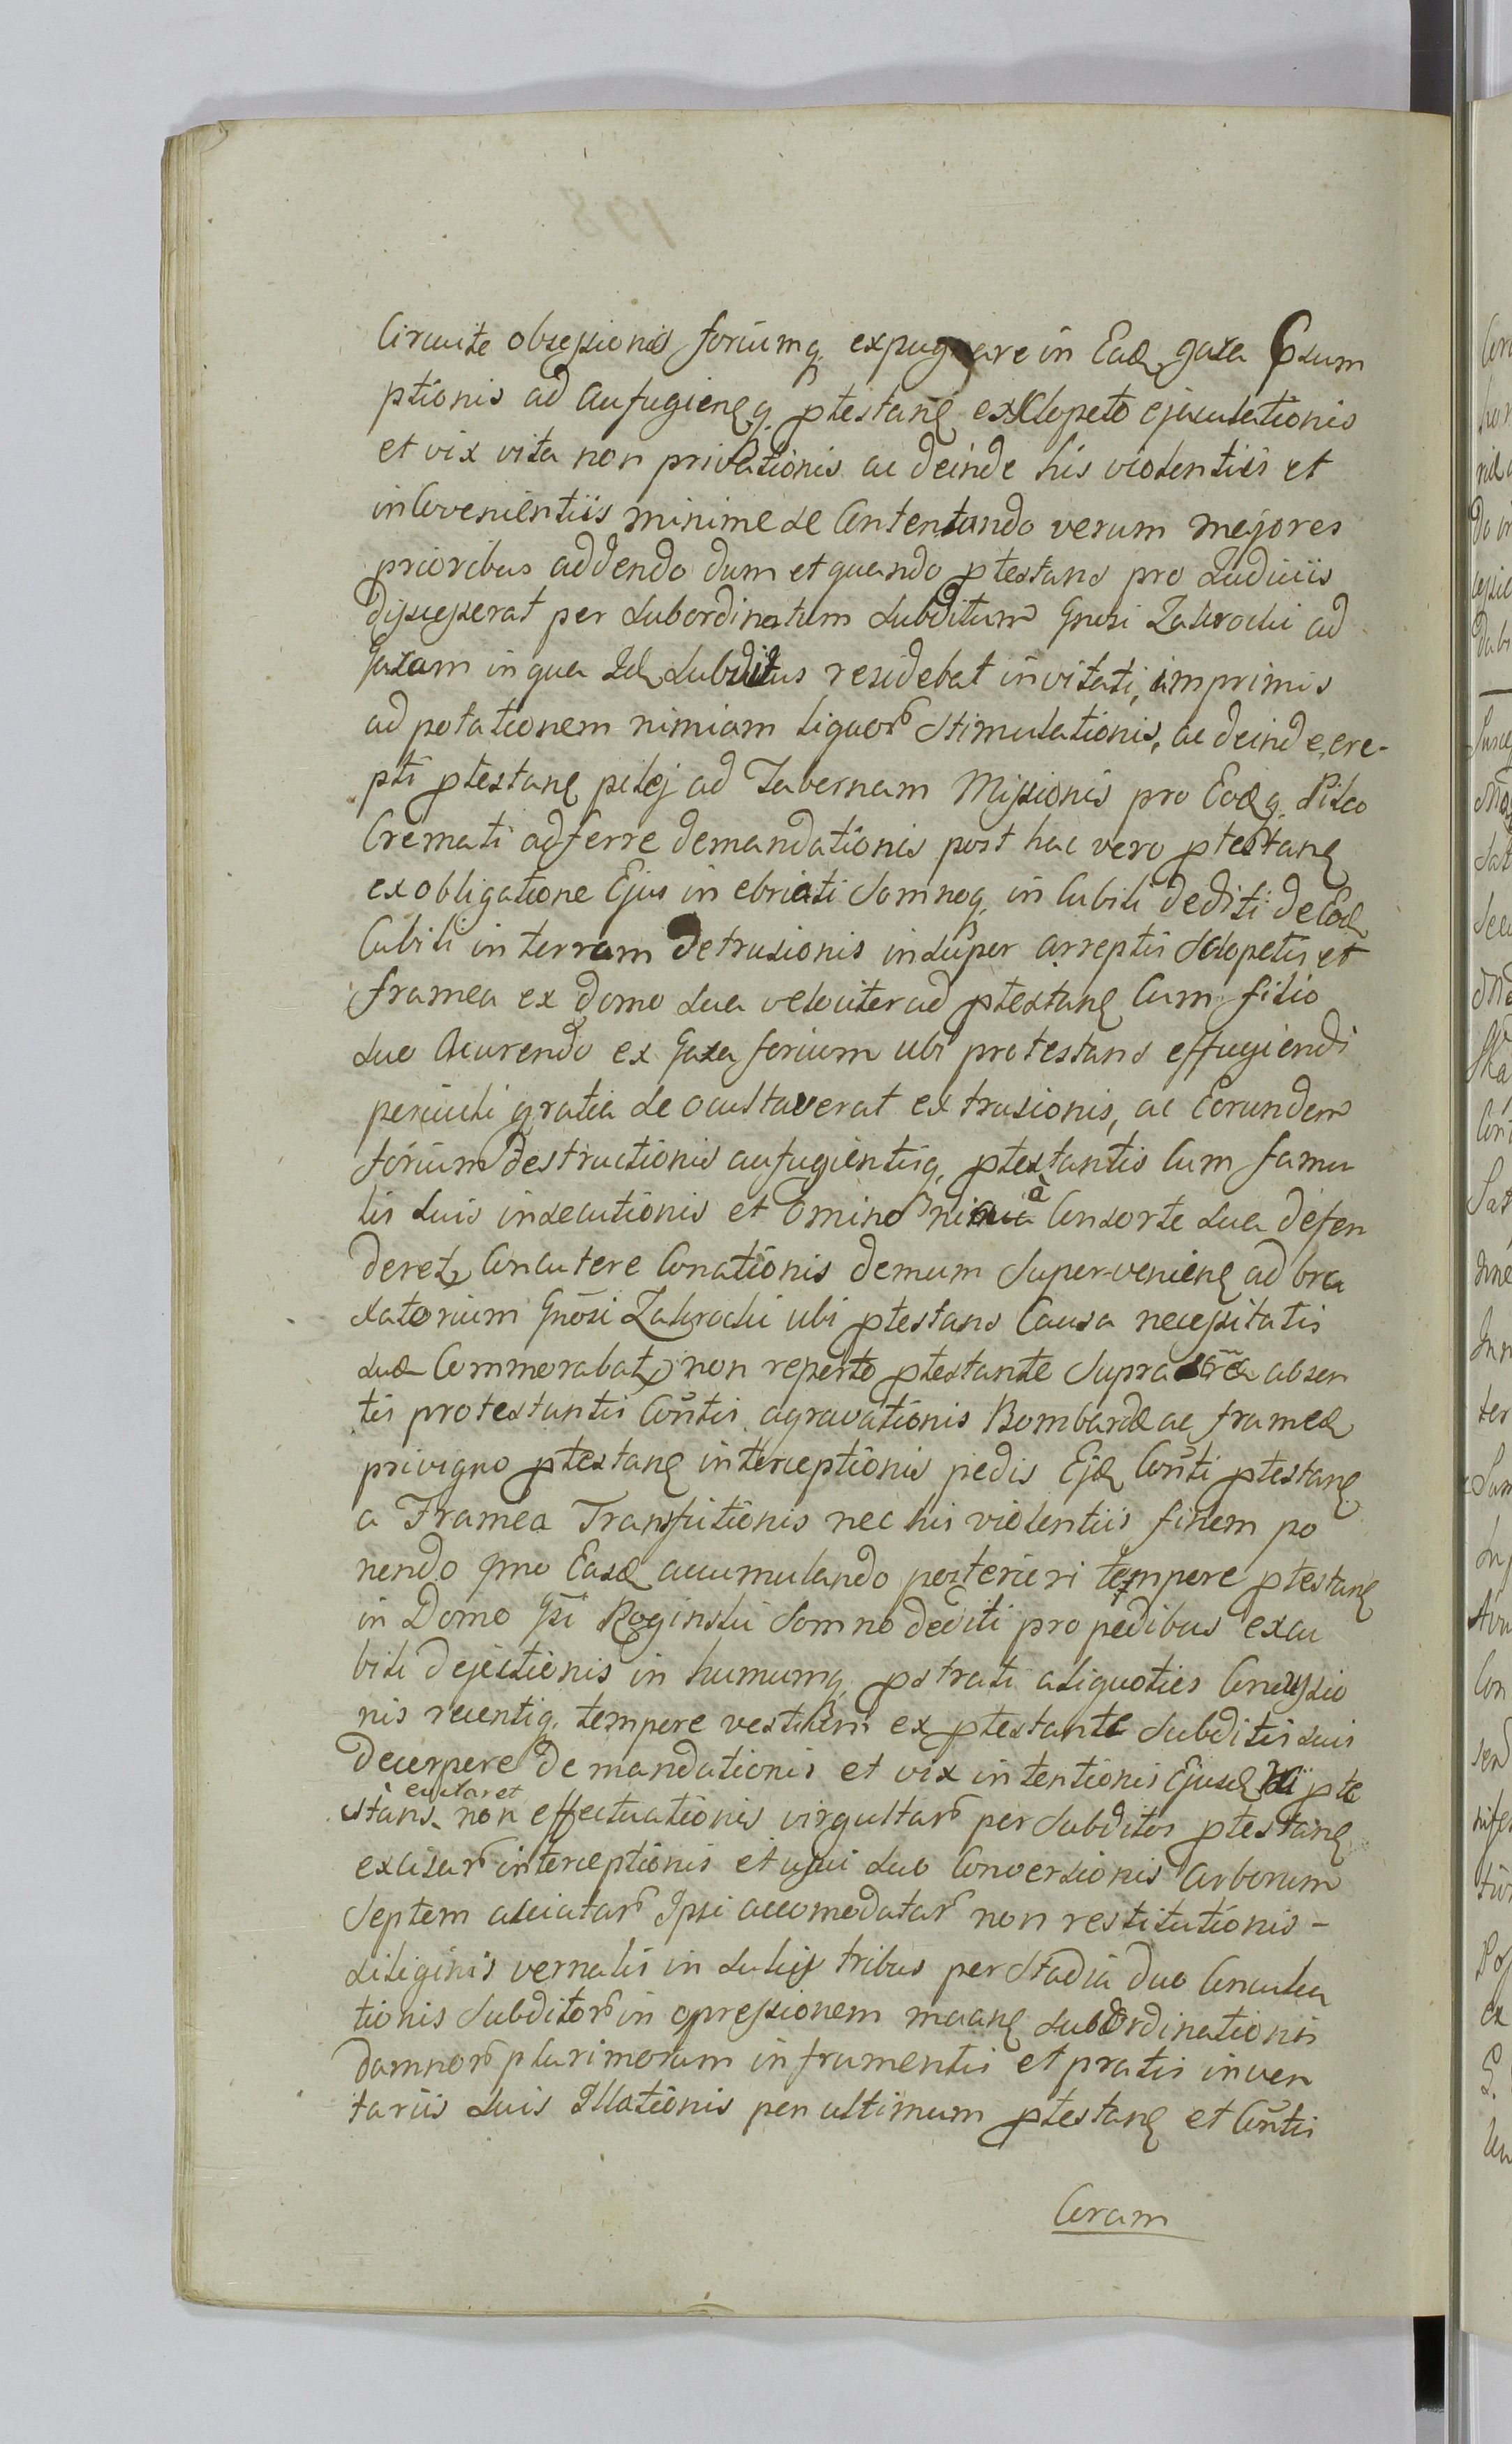 Circuite obsessionis foriumq expugnare in Eade gaza Psum
ptionis ad aufugieneq ptestane exsclopeto ejaculationis
et vix vita non privationis ac deinde his violentiis et
inConvenientiis minime se Contentando verum majores
prioribus addendo dum et quando ptestans pro Judiciis
discesserat per subordinatum subditum Gnosi Zakrocki ad
gazam in qua Ide subditus residebat invitati, imprimis
ad potationem nimiam liquor stimulationis, ac deinde, ere-
pti ptestane pilej ad Tabernam Missionis pro Eodeq Pileo
Cremati adferre demandationis post hac vero ptestane
ex obligatione Ejus inebriati somnoq in Cubili dediti de Eode
Cubili in terram Detrusionis insuper arreptis sclopetis et
framea ex domo sua velociter ad ptestane Cum filio
suo Acurendo ex gaza forium ubi protestans effugiendi
periculi gratia se ocultaverat extrusionis, ac Eorundem
forium destructionis aufugientisq, ptestantis Cum famu
lis suis insecutionis et omino ni à Consorte sua defen
deret, Concutere Conationis demum Super-veniene ad bra
xatorium Gnosi Zakrocki ubi ptestans Causa necessitatis
sua Commorabat, non reperto ptestante supra absen
tis protestantis Contis agravationis Bombarda ac framea
privigno ptestane interceptionis pedis Ejde Conti ptestane
a Framea Transfictionis nec his violentiis finem po
nendo imo Easde accumulando posteriori tempore ptestane
in Domo Gsi Roginski somno dediti pro pedibus excu
bili dejectionis in humumq pstrati aliquoties Concussio
nis recentiq, tempore vestium ex ptestante subditis suis
decerpere demandationis et vix intentionis Ejusde pte
stans exclaret non effectuationis virgultar per subditos ptestane
excisar interceptionis et usui suo Conversionis Arborum
Septem asciatar Ipsi accomodatar non restitutionis -
siliginis vernalis in sulcis tribus per stadia duo Conculca
tionis subditor in opressionem maane subordinationis
damnor plurimorum in frumentis et pratis inven
tariis suis Illationis penultimum ptestane et Contis
Coram